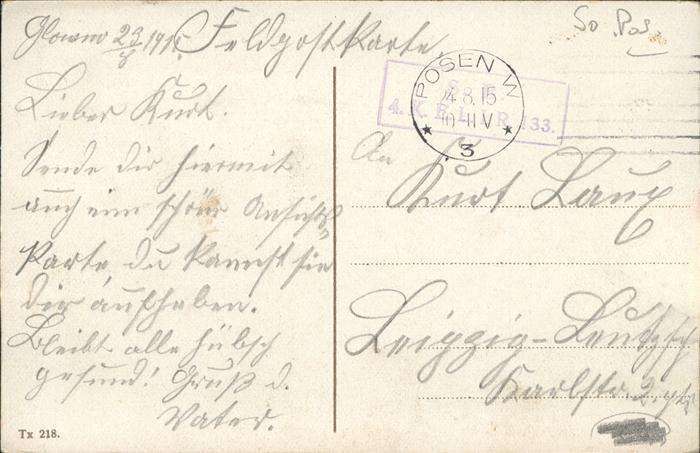 Glowno 23/8 1915 Feldpostkarte
Lieber Kurt.
Sende dir hiermit
auch eine schöne Ansichts
Karte du kannst sie
dir aufheben.
Bleibt alle hübsch
gesund! Gruß d.
Vater.
Tx 218.
So Pos
POSEN W
4.8.15
10-11 V
* 3 *
4. 133.
An
Kurt Laux
Leipzig-Leutzsch
Karlstr. 2